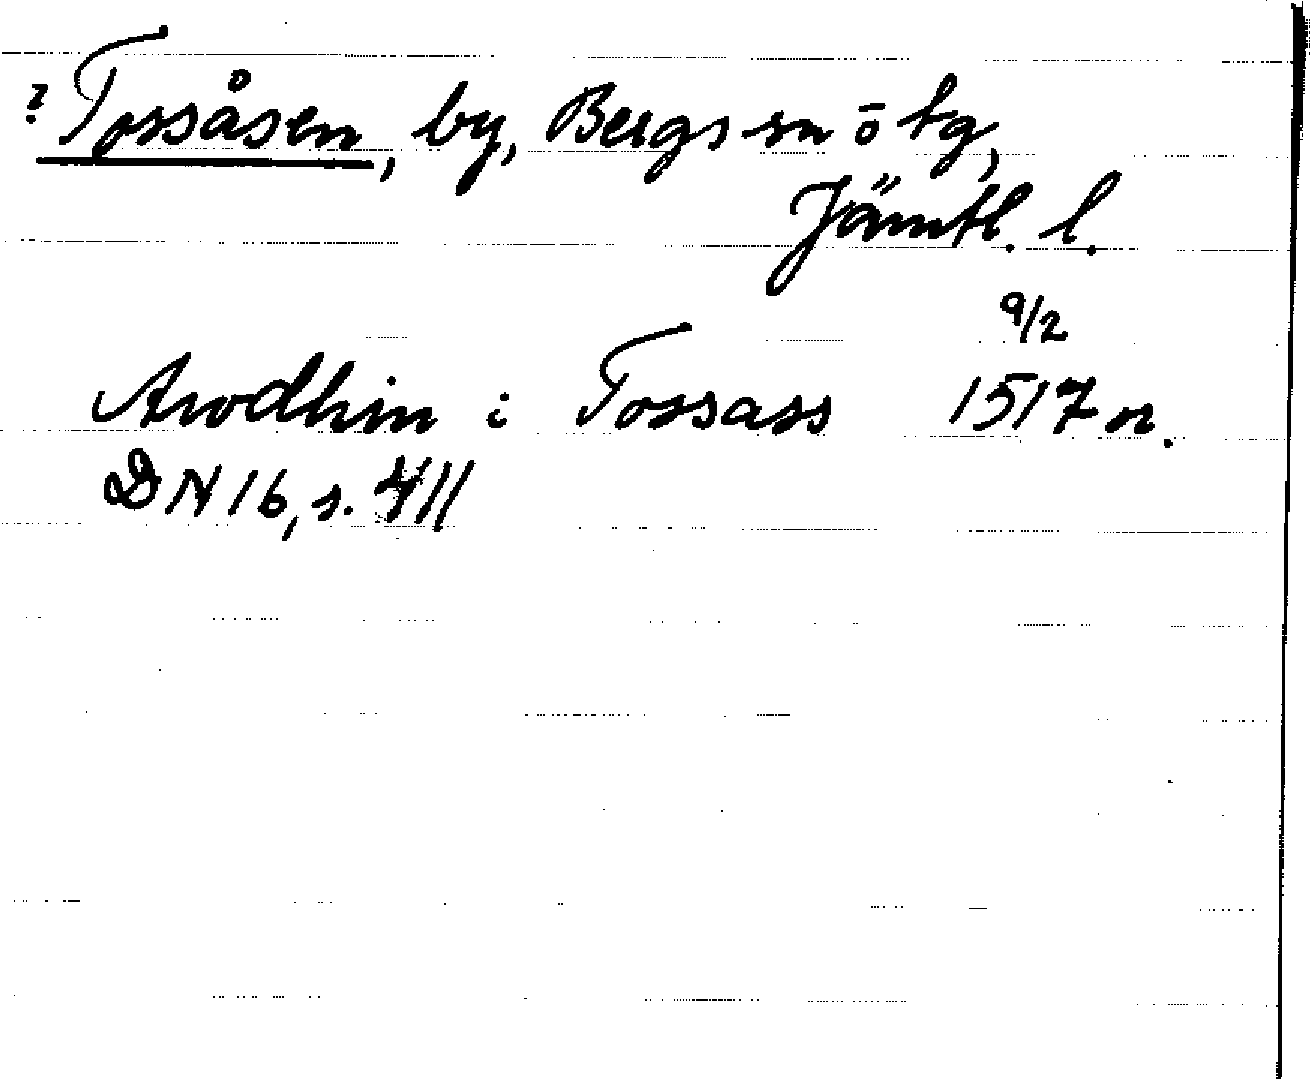 ? Tossåsen, by, Bergs sn ō tg,
Jämtl. l.
9/2
Arvdhin i Tossass 1517 or.
DN 16, s. 411